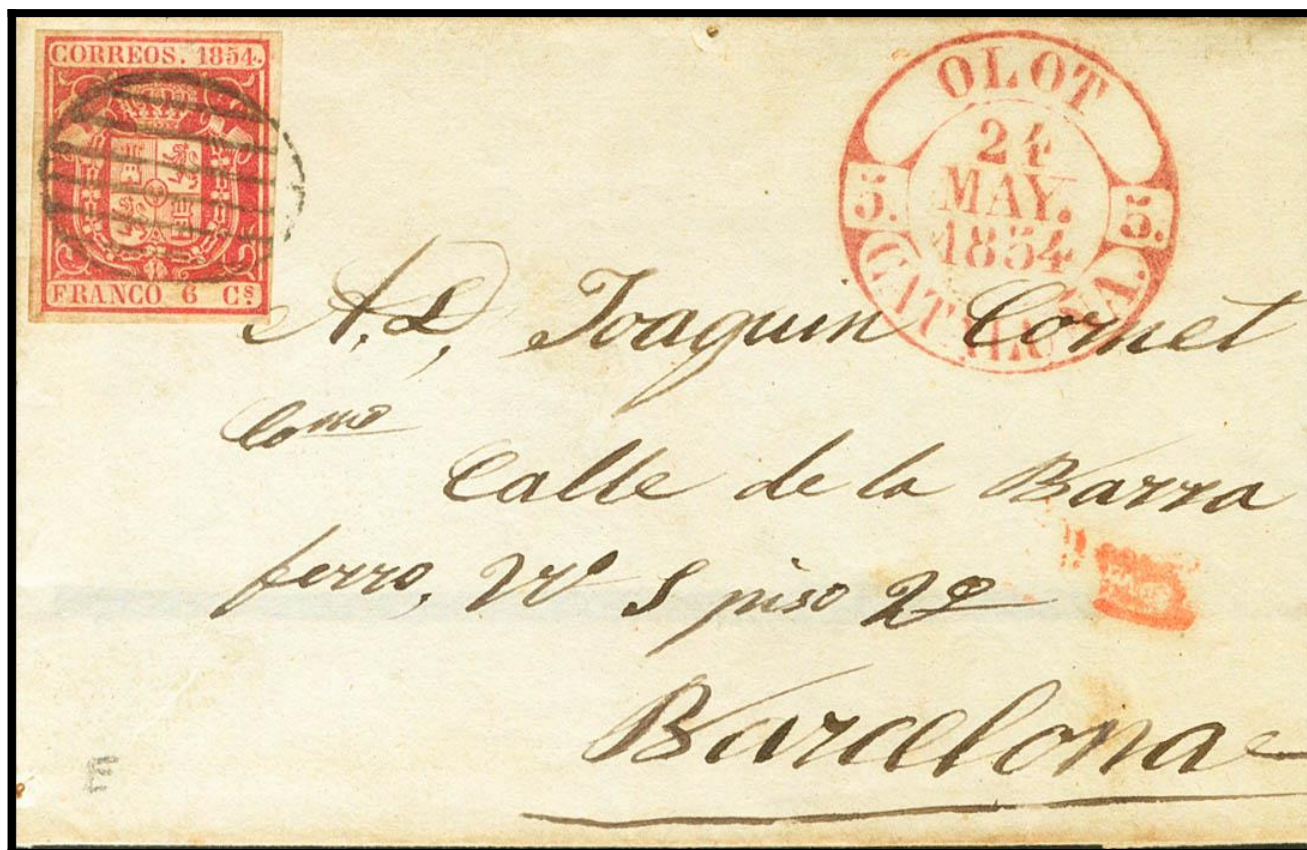 CORREOS. 1854.
FRANCO 6 Cs
OLOT
24
MAY.
1854
5. 5.
CATALUÑA.
A. D, Joaquin Comet
Como
Calle de la Barra
ferro, Nº 5 piso 2º
Barcelona
E